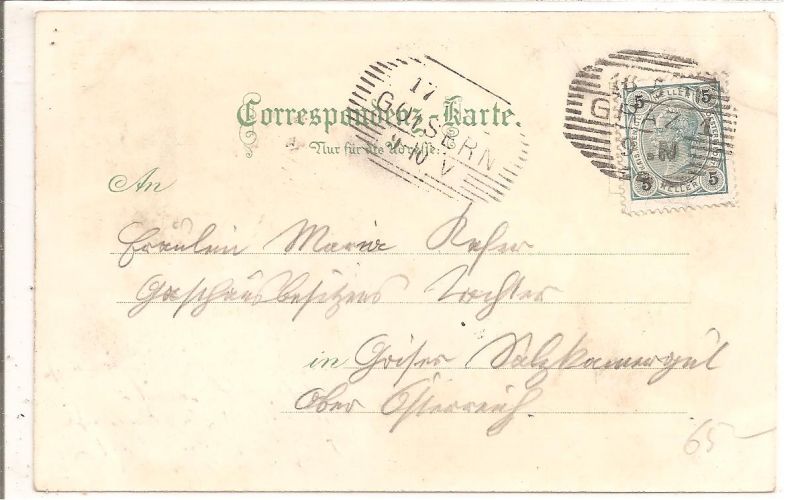 Correspondenz-Karte.
Nur für die Adresse.
17
GOISERN
9-10 V
GRAZ 1
5 5
HELLER
5 5
HELLER
An
Fräulein Maria Kefer
Gasthausbesitzers Tochter
in Goisern Salzkamergut
Ober Österreich
65-